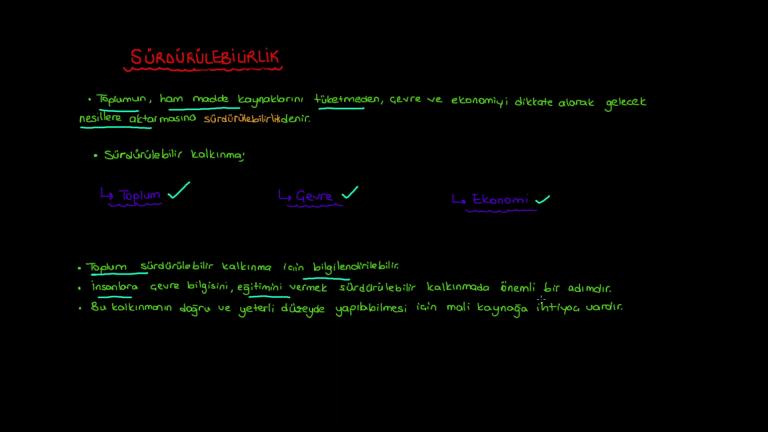 SÜRDÜRÜLEBİLİRLİK
• Toplumun, ham madde kaynaklarını tüketmeden, çevre ve ekonomiyi dikkate alarak gelecek
nesillere aktarmasına sürdürülebilirlik denir.
• Sürdürülebilir kalkınma;
↳ Toplum ✓ ↳ Çevre ✓ ↳ Ekonomi ✓
• Toplum sürdürülebilir kalkınma için bilgilendirilebilir.
• İnsanlara çevre bilgisini, eğitimini vermek sürdürülebilir kalkınmada önemli bir adımdır.
• Bu kalkınmanın doğru ve yeterli düzeyde yapılabilmesi için mali kaynağa ihtiyaç vardır.